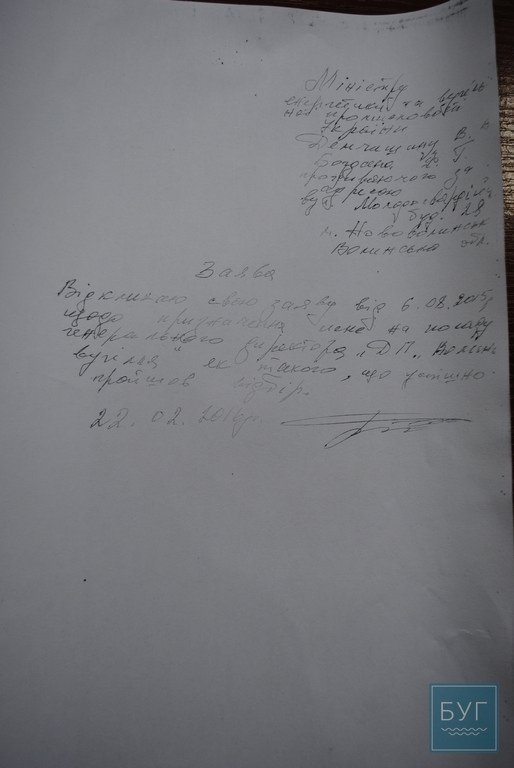 Міністру
енергетики та вугіль
ної промисловості
України
Демчишину В. В
Богдана
проживаючого за
адресою
вул Молодогвардій
буд. 28
м. Нововолинськ
Волинська обл.
Заява
Відкликаю свою заяву від 6.08.2015р
щодо призначення мене на посаду
генерального директора „ДП„ Волинь
вугілля" як такого, що успішно
пройшов відбір.
22. 02. 2016р.
БУГ